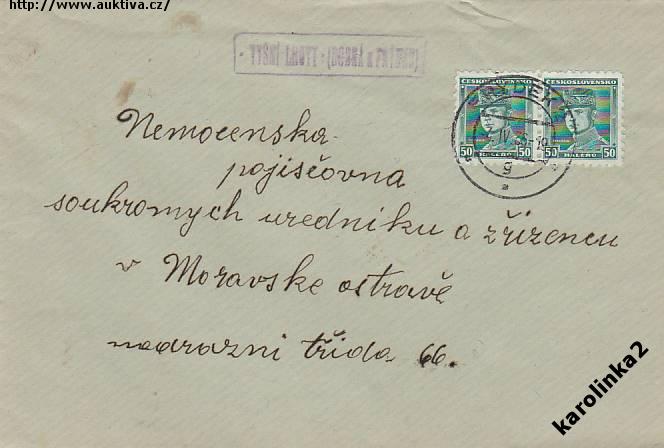 http://www.auktiva.cz/
VYŠNÍ LHOTY - (DOBRÁ u FRÝDKU)
ČESKOSLOVENSKO ČESKOSLOVENSKO
50 50 50
HALÉŘŮ HALÉŘŮ
g
Nemocenska
pojiščovna
soukromych uredniku a zřizencu
v Moravske ostravě
nadrazni třida 66.
karolinka2